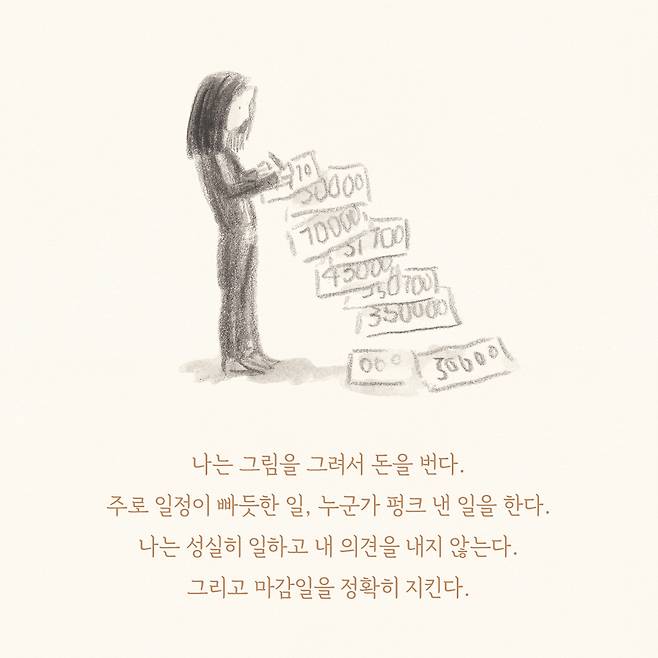 10
50000
70000
51700
43000
350700
350000
000
30000
나는 그림을 그려서 돈을 번다.
주로 일정이 빠듯한 일, 누군가 펑크 낸 일을 한다.
나는 성실히 일하고 내 의견을 내지 않는다.
그리고 마감일을 정확히 지킨다.